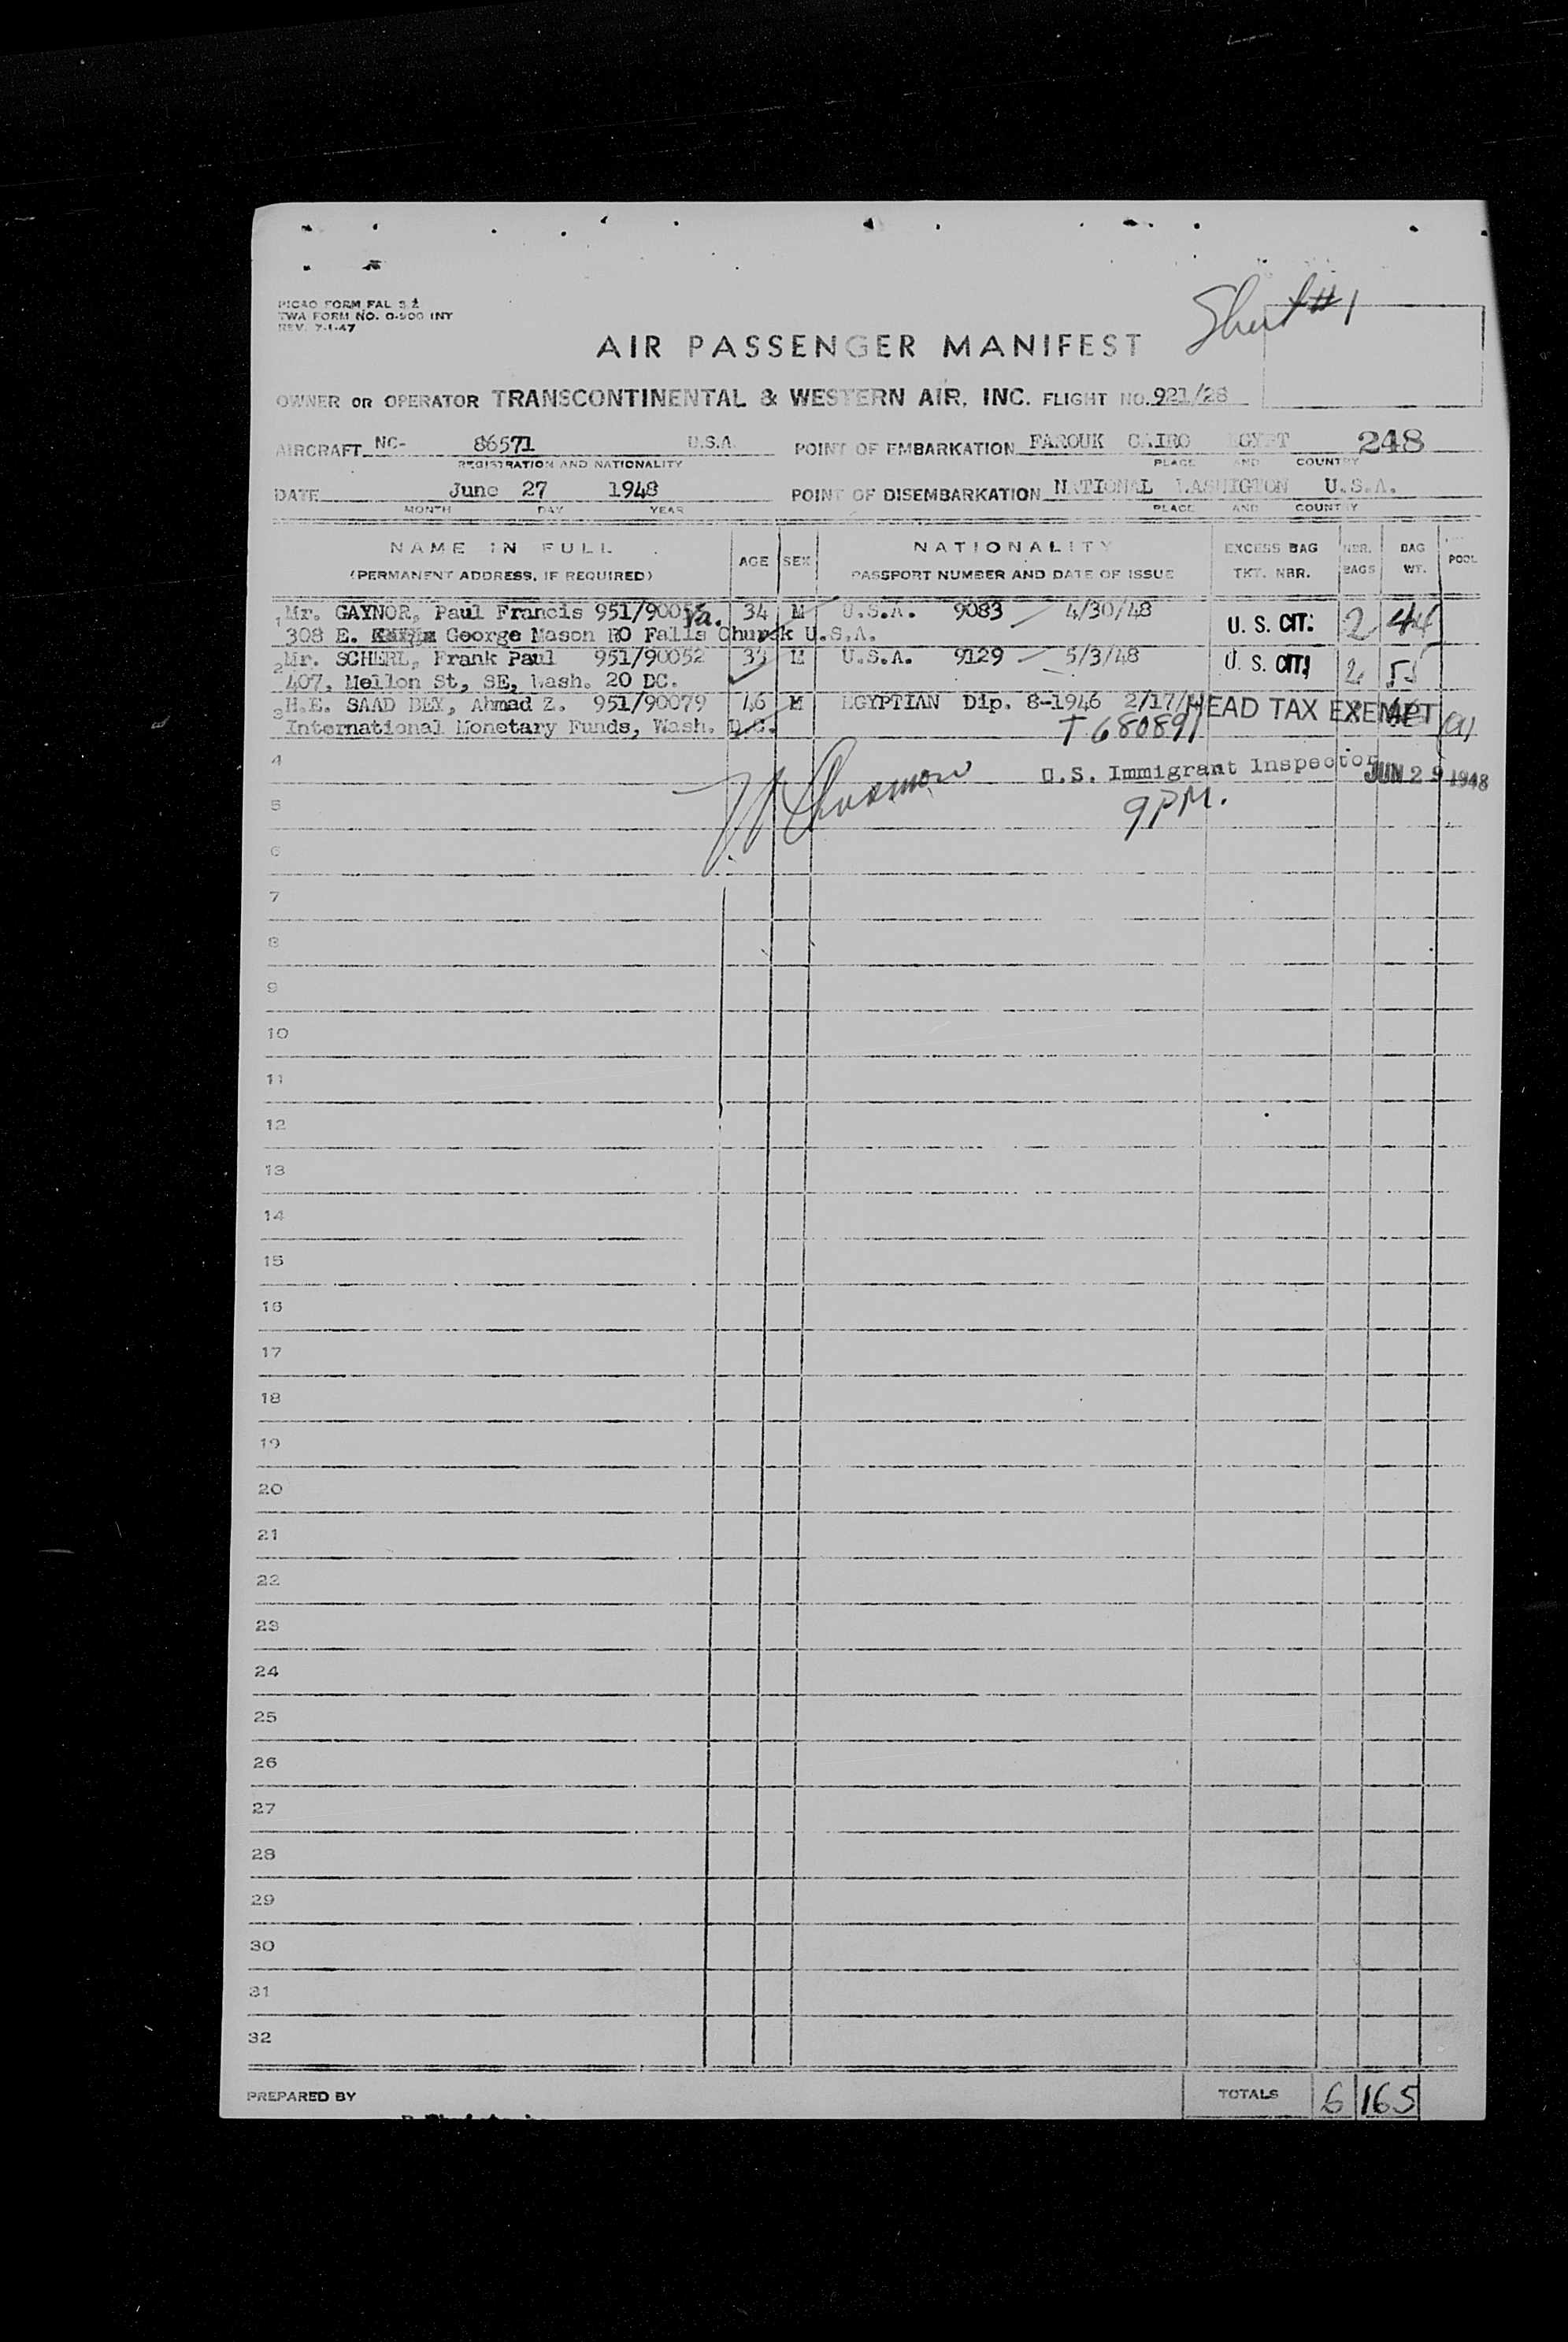 Sheet #1
PICAO FORM FAL 3.2
TWA FORM NO. O-900 INT
REV. 7-1-47
AIR PASSENGER MANIFEST
OWNER OR OPERATOR TRANSCONTINENTAL & WESTERN AIR, INC. FLIGHT NO. 921/28
AIRCRAFT NC- 86571 U.S.A. POINT OF EMBARKATION FAROUK CAIRO EGYPT 248
REGISTRATION AND NATIONALITY PLACE AND COUNTRY
DATE June 27 1948 POINT OF DISEMBARKATION NATIONAL WASHIGTON U.S.A.
MONTH DAY YEAR PLACE AND COUNTRY
NAME IN FULL AGE SEX NATIONALITY EXCESS BAG NBR. BAG POOL
(PERMANENT ADDRESS, IF REQUIRED) PASSPORT NUMBER AND DATE OF ISSUE TKT. NBR. BAGS WT.
1 Mr. GAYNOR, Paul Francis 951/9005 Va. 34 M U.S.A. 9083 4/30/48 U. S. CIT. 2 44
308 E. George Mason RO Falls Church U.S.A.
2 Mr. SCHERL, Frank Paul 951/90052 M U.S.A. 9129 5/3/48 U. S. CIT. 2 55
407, Mellon St, SE, Wash. 20 DC.
3 H.E. SAAD BEY, Ahmad Z. 951/90079 46 M EGYPTIAN Dip. 8-1946 2/17/ HEAD TAX EXEMPT
International Monetary Funds, Wash. D.C. T 680891
4 U.S. Immigrant Inspector JUN 29 1948
5 9 PM.
6
7
8
9
10
11
12
13
14
15
16
17
18
19
20
21
22
23
24
25
26
27
28
29
30
31
32
PREPARED BY TOTALS 6 165